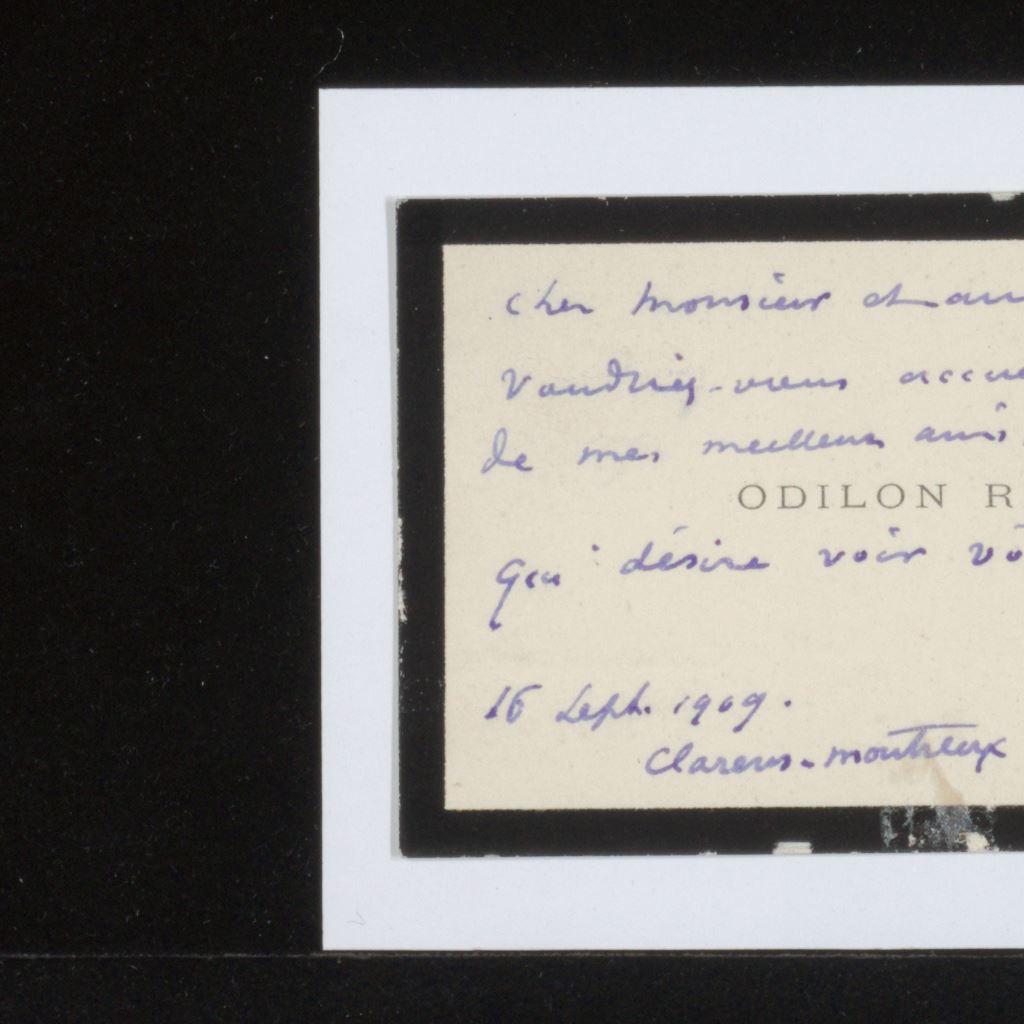 Cher Monsieur et am
Voudriez-vous accue
de mes meilleurs amis,
ODILON R
qui désire voir vo
16 Sept. 1909.
Clarens-Montreux